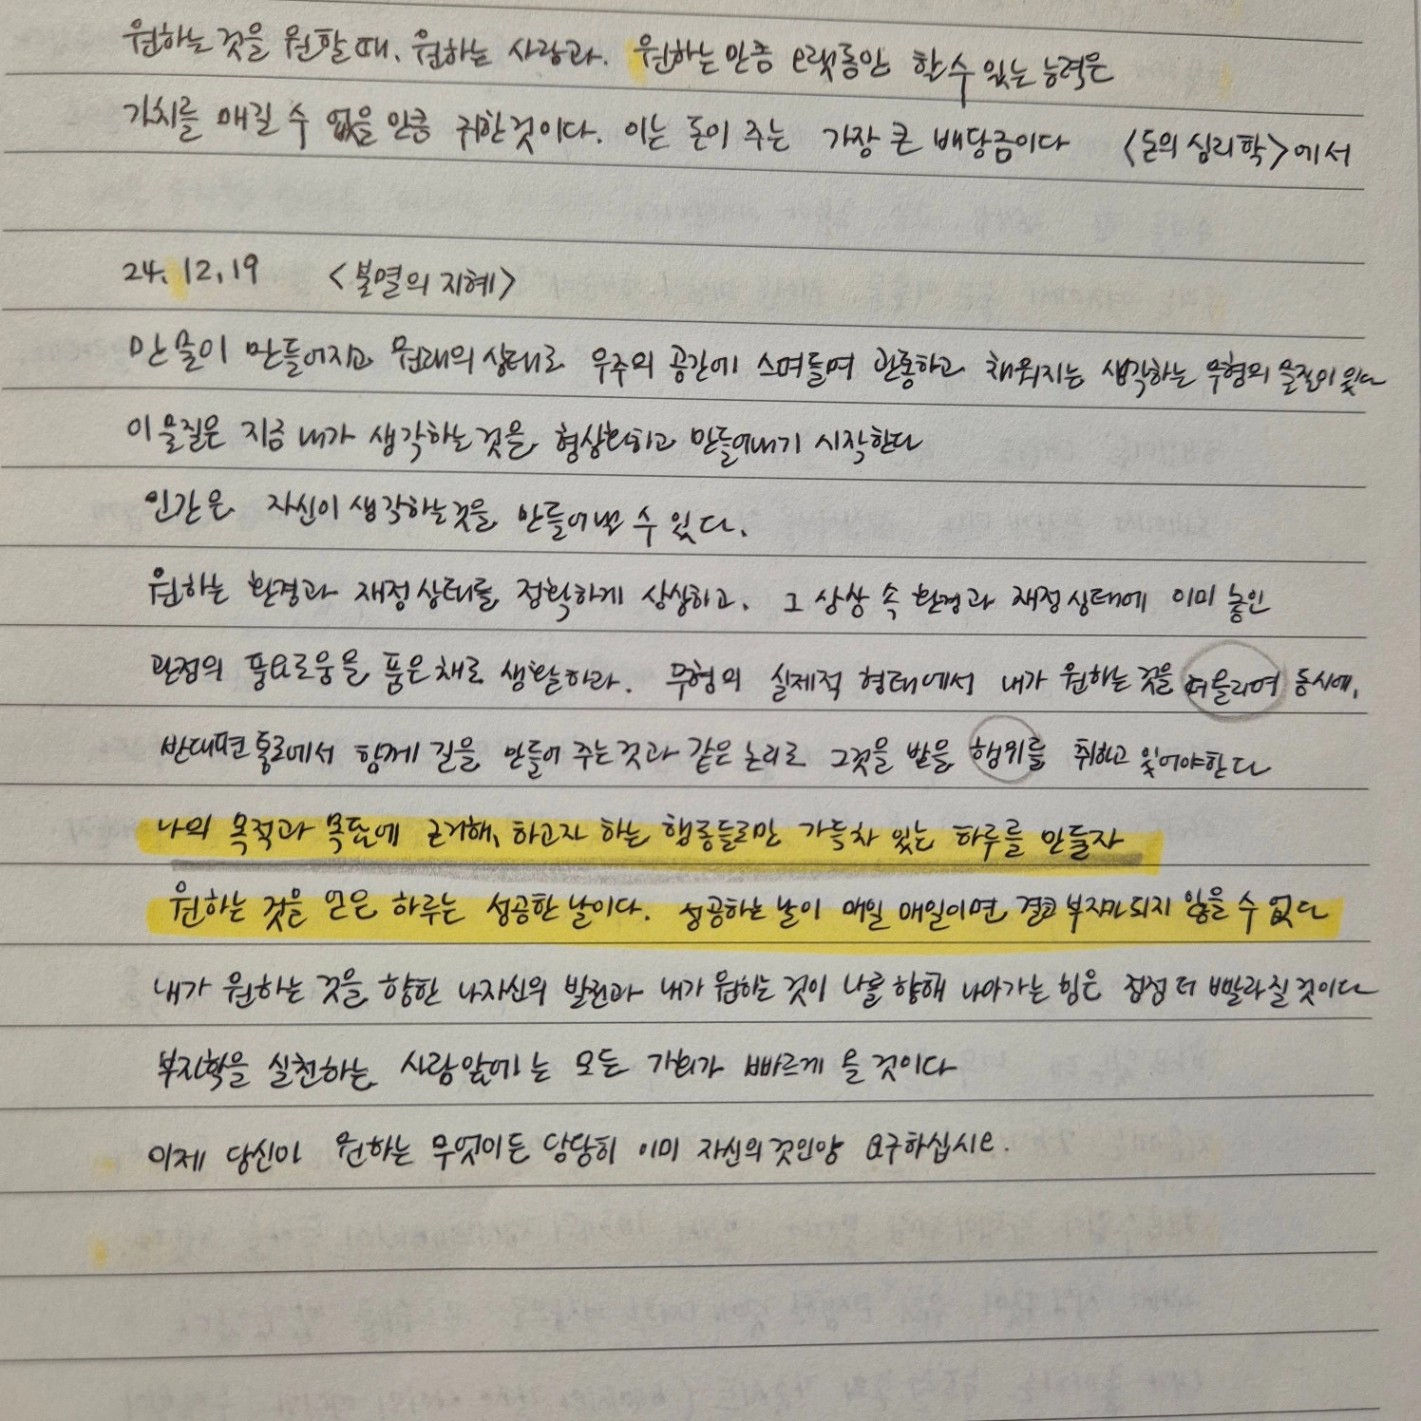 원하는 것을 원할 때, 원하는 사람과. 원하는 만큼 오랫동안 할 수 있는 능력은
가치를 매길 수 없을 만큼 귀한 것이다. 이는 돈이 주는 가장 큰 배당금이다 <돈의 심리학>에서
24. 12. 19 <불멸의 지혜>
만물이 만들어지고 원래의 상태로 우주의 공간에 스며들며 관통하고 채워지는 생각하는 무형의 물질이 있다
이 물질은 지금 내가 생각하는 것을 형상화하고 만들어내기 시작한다
인간은 자신이 생각하는 것을 만들어낼 수 있다.
원하는 환경과 재정상태를 정확하게 상상하고, 그 상상 속 환경과 재정상태에 이미 놓인
관점의 풍요로움을 품은 채로 생활하라. 무형의 실제적 형태에서 내가 원하는 것을 떠올리며 동시에,
반대편 통로에서 함께 길을 만들어 주는 것과 같은 논리로 그것을 받을 행위를 취하고 있어야한다
나의 목적과 목표에 근거해, 하고자 하는 행동들로만 가득차 있는 하루를 만들자
원하는 것을 얻은 하루는 성공한 날이다. 성공하는 날이 매일 매일이면 결코 부자가 되지 않을 수 없다
내가 원하는 것을 향한 나자신의 발전과 내가 원하는 것이 나를 향해 나아가는 힘은 점점 더 빨라질 것이다
부자학을 실천하는 사람앞에는 모든 기회가 빠르게 올 것이다
이제 당신이 원하는 무엇이든 당당히 이미 자신의 것인양 요구하십시오.